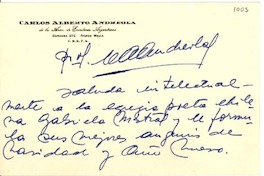 1005
CARLOS ALBERTO ANDREOLA
de la Asoc. de Escritores Argentinos
saluda intelectual-
mente a la egregia poeta chile
na Gabriela Mistral y le formu
la sus mejores augurios de
Navidad y Año Nuevo.